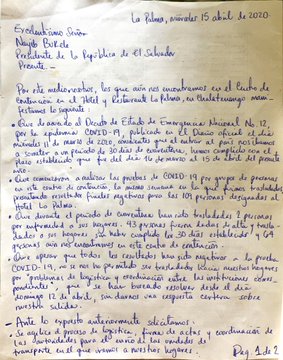 La Palma, miércoles 15 abril de 2020.
Excelentísimo Señor
Nayib Bukele
Presidente de la República de El Salvador
Presente. -
Por este medio nosotros, los que aún nos encontramos en el Centro de
Contención en el Hotel y Restaurante La Palma, en Chalatenango
manifestamos lo siguiente:
• Que de acuerdo al Decreto de Estado de Emergencia Nacional No. 12,
por la epidemia COVID-19, publicado en el Diario oficial el día
miércoles 11 de marzo de 2020, conscientes que al entrar al país nos íbamos
a someter a un periodo de 30 días de cuarentena; hemos cumplido con el
plazo establecido que fue del día 16 de marzo al 15 de abril del presente
año.
• Que comenzaron a realizar las pruebas de COVID-19 por grupos de personas
en este centro de contención, la misma semana en la que fuimos trasladados
presentando resultados finales negativos para las 109 personas designadas al
Hotel La Palma.
• Que durante el periodo de cuarentena han sido trasladados 2 personas
por enfermedad a sus hogares, 43 personas fueron dadas de alta y
trasladados a sus hogares sin haber cumplido los 30 días establecidos y 64
personas aún nos encontramos en este centro de contención.
• Que apesar que todos los resultados han sido negativos a la prueba
COVID-19, a nos no ha permitido ser trasladados hacia nuestros hogares
por "problemas de logística y coordinación entre las instituciones
correspondientes", que se han buscado resolver desde el día
domingo 12 de abril, sin darnos una respuesta certera sobre
nuestra salida.
- Ante lo expuesto anteriormente solicitamos:
• Se agilice el proceso de logística, firma de actas y coordinación de
las autoridades para el envío de las unidades de
transporte en el que vamos a nuestros hogares.
Pag. 1 de 2